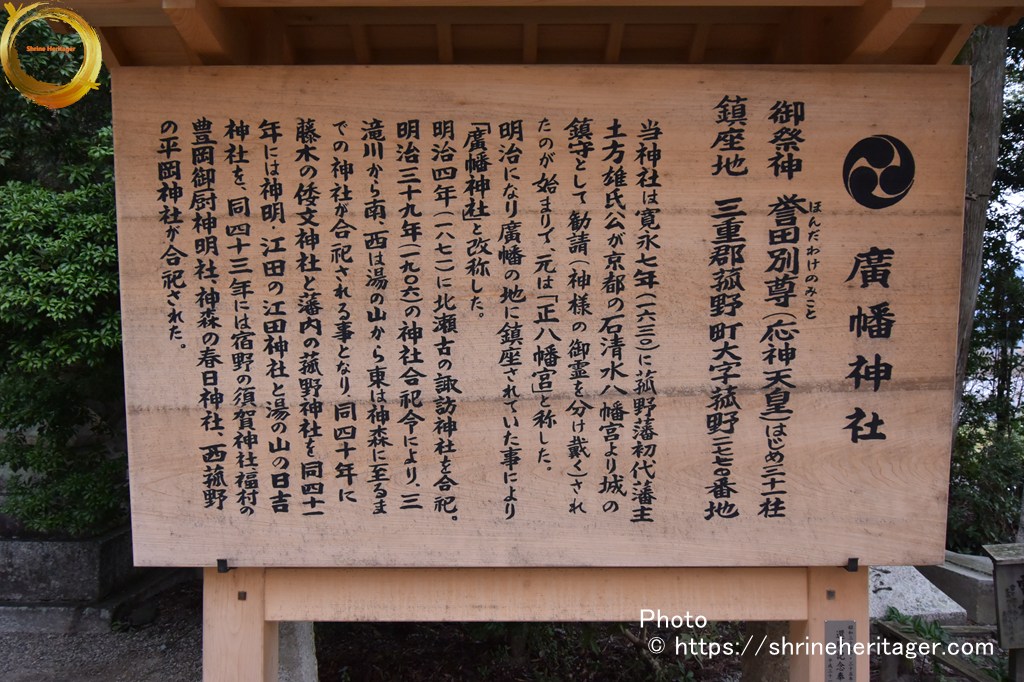 Shrine Heritager
廣幡神社
御祭神 誉田別尊(応神天皇)はじめ三十一柱
ほんだわけのみこと
鎮座地 三重郡菰野町大字菰野一七七〇番地
当神社は寛永七年(一六三〇)に菰野藩初代藩主
土方雄氏公が京都の「石清水八幡宮」より城の
鎮守として勧請(神様の御霊を分け戴く)され
たのが始まりで、元は「正八幡宮」と称した。
明治になり廣幡の地に鎮座されていた事により
「廣幡神社」と改称した。
明治四年(一八七一)に北瀬古の諏訪神社を合祀。
明治三十九年(一九〇六)の神社合祀令により、三
滝川から南、西は湯の山から東は神森に至るま
での神社が合祀される事となり、同四十年に
藤木の倭文神社と藩内の菰野神社を、同四十一
年には神明・江田の江田神社と湯の山の日吉
神社を、同四十三年には宿野の須賀神社、福村の
豊岡御厨神明社、神森の春日神社、西菰野
の平岡神社が合祀された。
Photo
© https://shrineheritager.com